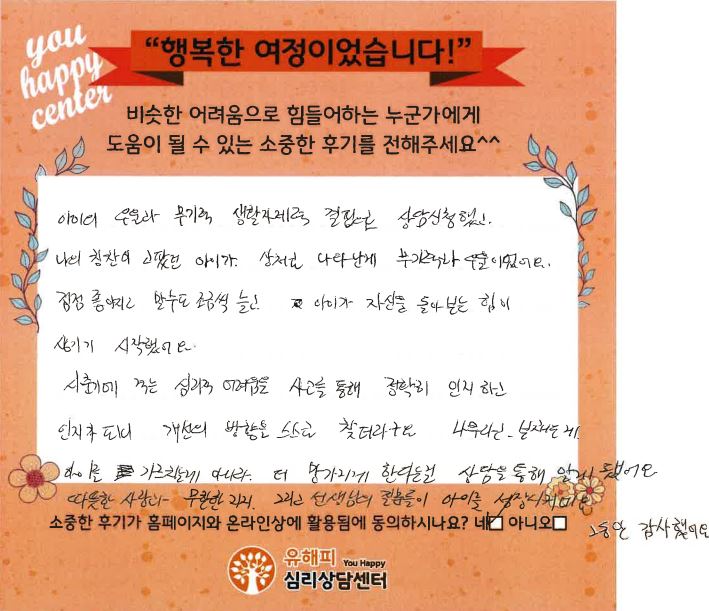 you
happy
center
“행복한 여정이었습니다!”
비슷한 어려움으로 힘들어하는 누군가에게
도움이 될 수 있는 소중한 후기를 전해주세요^^
아이의 우울과 무기력 생활자제력 결핍으로 상담신청했고.
나의 칭찬이 고팠던 아이가. 상처로 나타난게 무기력과 우울이었어요.
점점 좋아지고 말수도 조금씩 늘고 아이가 자신을 돌아보는 힘이
생기기 시작했어요.
사춘기에 겪는 심리적 어려움을 사고를 통해 정확히 인지하고
인지가 되니 개선의 방향을 스스로 찾더라구요 나무라고
아이를 가르치는게 아니라. 더 한다는걸 상담을 통해 알게 됐어요
따뜻한 사랑과 무한한 지지. 그리고 선생님의 질문들이 아이를 성장시켜
그동안 감사했어요
소중한 후기가 홈페이지와 온라인상에 활용됨에 동의하시나요? 네 아니오
유해피 You Happy
심리상담센터